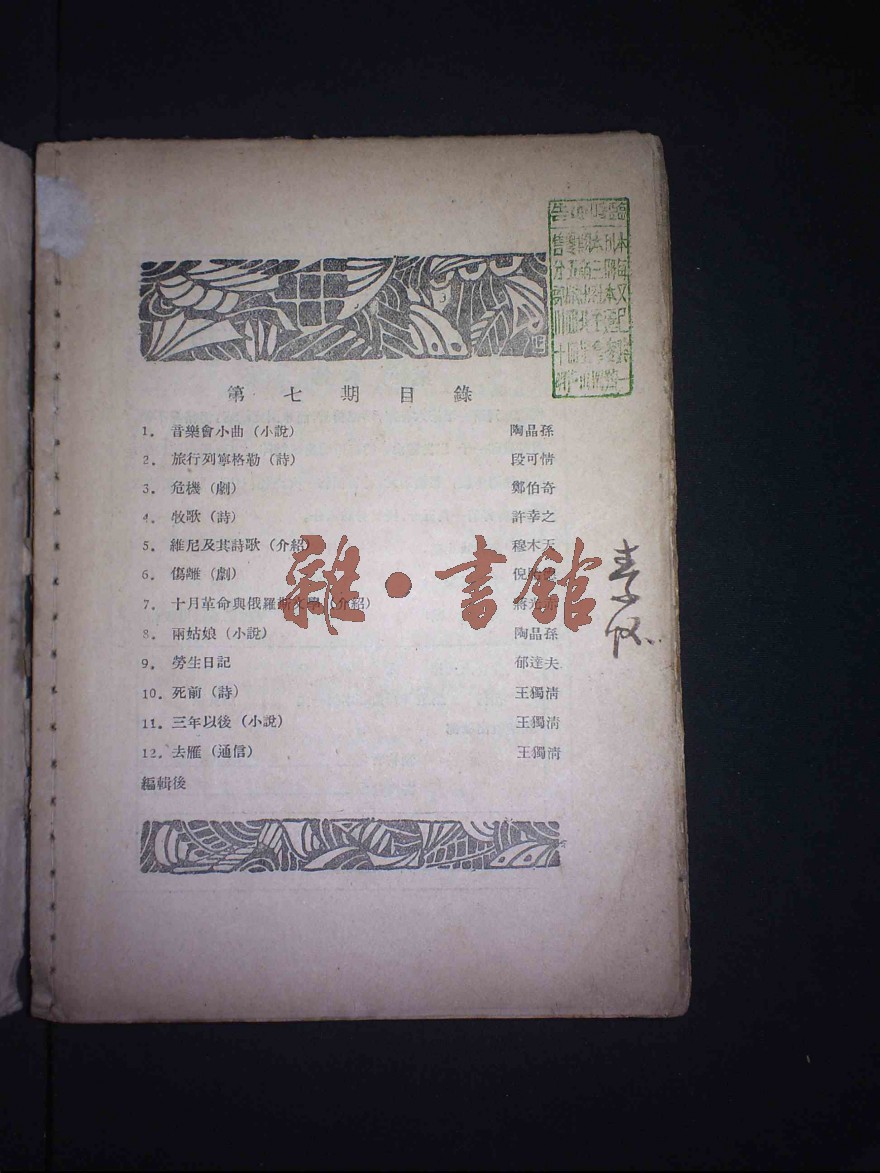 第七期目錄
1. 音樂會小曲（小說） 陶晶孫
2. 旅行列寧格勒（詩） 段可情
3. 危機（劇） 鄭伯奇
4. 牧歌（詩） 許幸之
5. 維尼及其詩歌（介紹） 穆木天
6. 傷離（劇） 倪
7. 十月革命與俄羅斯文學（介紹） 蔣光
8. 兩姑娘（小說） 陶晶孫
9. 勞生日記 郁達夫
10. 死前（詩） 王獨清
11. 三年以後（小說） 王獨清
12. 去雁（通信） 王獨清
編輯後
雜·書館